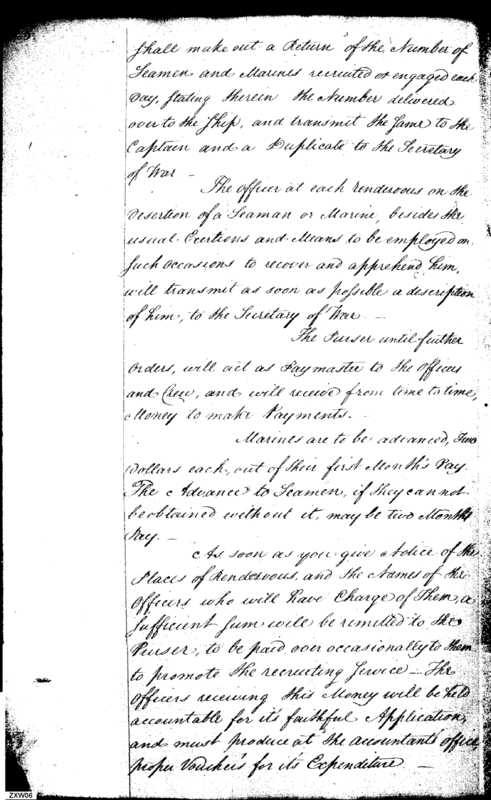 shall make out a Return of the Number of
Seamen and Marines recruited or engaged each
Day, stating therein the Number delivered
over to the Ship, and transmit the same to the
Captain and a Duplicate to the Secretary
of War —
The officer at each rendezvous on the
desertion of a Seaman or Marine, besides the
usual Exertions and Means to be employed on
such occasions to recover and apprehend him,
will transmit as soon as possible a description
of him, to the Secretary of War —
The Purser until further
orders, will act as Paymaster to the officers
and Crew, and will receive from time to time,
Money to make Payments. —
Marines are to be advanced, Two
Dollars each, out of their first Month's Pay.
The Advance to Seamen, if they cannot
be obtained without it, may be two Months
Pay. —
As soon as you give Notice of the
Places of Rendezvous, and the Names of the
Officers who will have Charge of Them, a
sufficient sum will be remitted to the
Purser, to be paid over occasionally to them
to promote the recruiting service — The
officers receiving this Money will be held
accountable for it's faithful Application,
and must produce at the accountants office
proper Vouchers for its Expenditure —
ZXW06